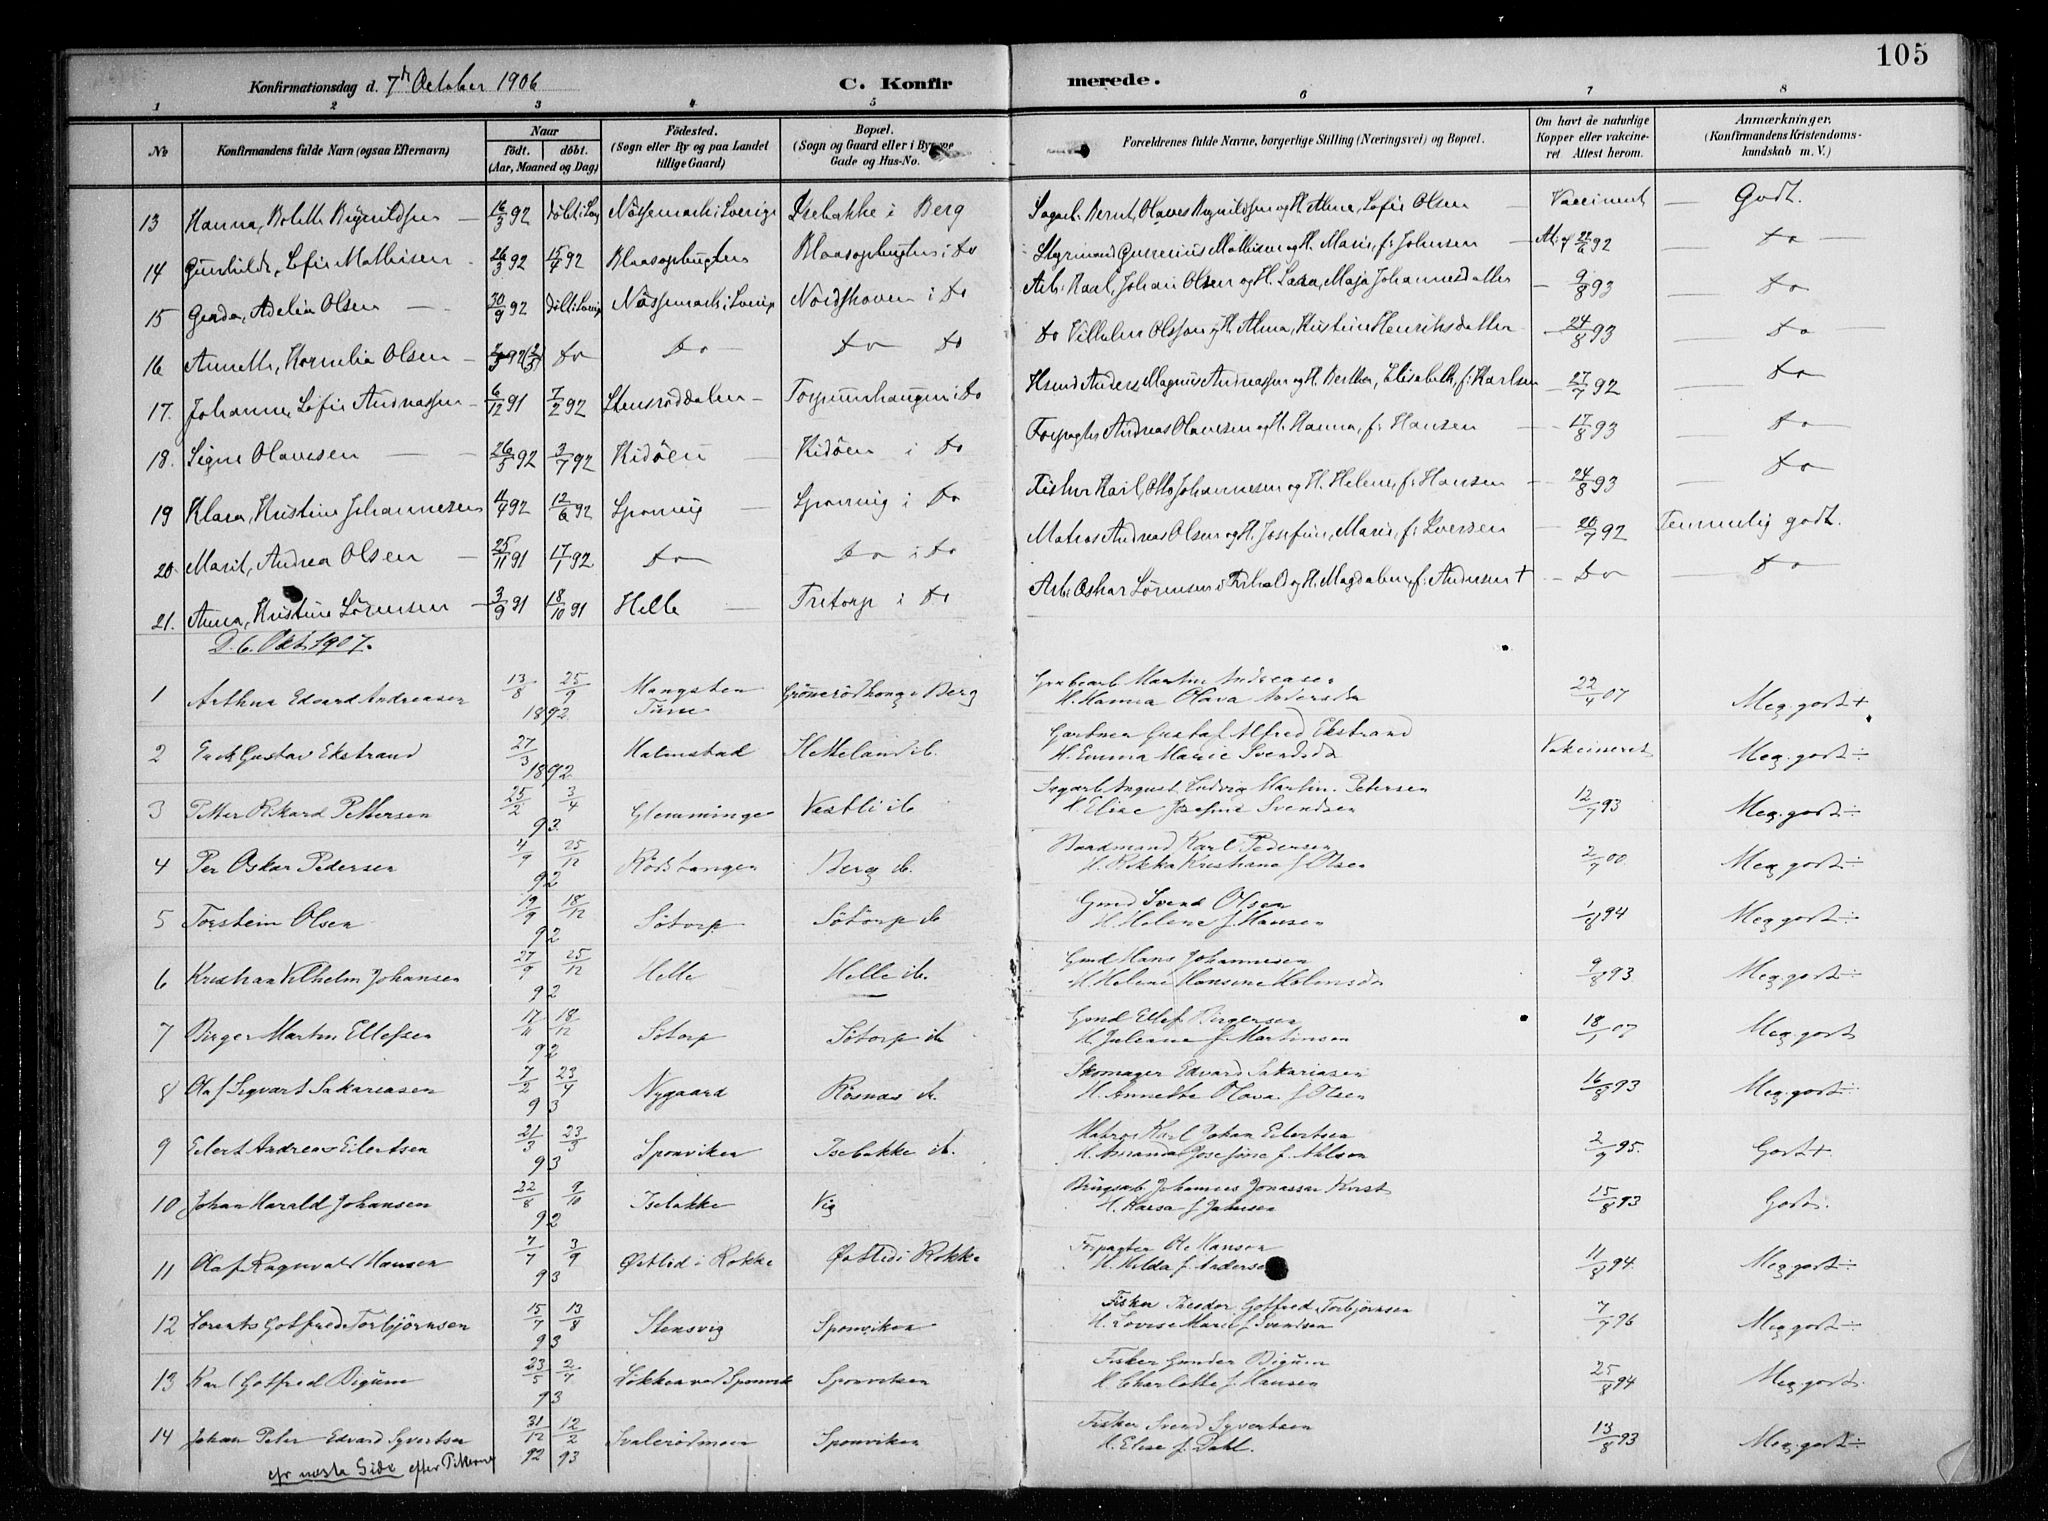 105
Konfirmationsdag d. 7de October 1906 C. Konfirmerede.
1 2 3 4 5 6 7 8
No Konfirmandens fulde Navn (ogsaa Efternavn) Naar født. døbt. (Aar, Maaned og Dag) Fødested. (Sogn eller By og paa Landet tillige Gaard) Bopæl. (Sogn og Gaard eller i Byerne Gade og Hus-No. Forældrenes fulde Navne, borgerlige Stilling (Næringsvei) og Bopæl. Om havt de naturlige Kopper eller vakcineret Attest herom. Anmærkninger. (Konfirmandens Kristendomskundskab m. V.)
13 Hanna, Bolette 16/3 92 Døbt i Isebakke i Berg Bernt, Olaves og H. Sofie Olsen Vaccineret — Godt.
14 Gunhilda, Sofie Mathisen 26/3 92 15/4 92 Blaasopbugten Blaasopbugten i Do Styrmand Mathisen og H. Marie, f. Johnsen 22/6 92 — Do —
15 Gerda, Adelia Olsen — 30/9 92 i Nordshoven i Do Arb. Karl Johan Olsen og H. Lara, Maja Johannesdatter — 9/8 93 — Do
16 Annette, Kornelia Olsen — Do Do Do Do Do Vilhelm Olsson og H. Alma, Kristine Henriksdatter — 24/8 93 — Do —
17. Johanne, Sofie Andreassen 6/12 91 7/2 92 Stensröddalen — Torpumhaugen i Do Anders Magnus Andreassen og H. Berthe, Elisabeth, f. Karlsen — 27/7 92 Do
18. Signe Olavesen — 26/5 92 3/7 92 Kidöen — Kidöen i Do Forpagter Andreas Olavesen og H. Hanna, f. Hansen — 17/8 93 — Do
19 Klara, Kristine Johannesen 4/4 92 12/6 92 Sponvig — Sponvig i Do Fisker Karl, Otto Johannesen og H. Helene, f. Hansen — 24/8 93 — Do
20 Marit, Andrea Olsen — 25/11 91 17/1 92 Do Do i Do Matros Andreas Olsen og H. Josefine, Marie, f. Iversen — 20/7 92 Temmelig godt.
21. Anna, Kristine Sörensen — 3/9 91 18/10 91 Helle — Tretorp i Do Arb. Oskar Sörensen i og H. Magdalene, f. Andersen + — Do Do
D. 6. Okt. 1907.
1 Arthur Edvard Andreasen 13/8 25/9 1892 Mangsten Tune Grönnerödhong i Berg Martin Andreasen H. Hanna Olava Andersda 22/4 07 Meg. godt +
2 Erik Gustav Ekstrand 27/3 1892 Halmstad Hetteland ib. Gartner Gustaf Alfred Ekstrand H. Emma Marie Svendsda Vakcineret Meg. godt ÷
3 Petter Rikard Pettersen 25/2 3/4 93 Glemminge Vestli ib. August Ludvig Martin Petersen H. Elise Josefine Svendsen 12/7 93 Meg. godt ÷
4 Per Oskar Pedersen 4/9 25/12 92 Berg ib. Karl Pedersen H. Rikka Kristiane f. Olsen 2/7 00 Meg. godt ÷
5 Torstein Olsen 19/9 18/12 92 Sötorp Sötorp ib Gmd Svend Olsen H. Helene f. Hansen 1/8 94 Meg. godt ÷
6 Kristian Vilhelm Johansen 27/9 25/12 92 Helle Helle ib. Gmd Hans Johannesen H. Helene Hansine Holmsda 9/8 93 Meg. godt ÷
7 Birger Martin Ellefsen 17/11 18/12 92 Sötorp Sötorp ib Gmd Ellef Birgersen H. Juliane f. Martinsen 18/1 07 Meg. godt
8 Olaf Sigvart Sakariasen 7/2 23/4 93 Nygaard Rösnæs ib. Skomager Edvard Sakariasen H. Annette Olava f. Olsen 16/8 93 Meg. godt ÷
9 Eilert Andreas Eilertsen 21/3 23/9 93 Sponviken Isebakke ib. Matros Karl Johan Eilertsen H. Amanda Josefine f. Ahlson 2/9 95. Godt +.
10 Johan Harald Johansen 22/8 9/10 92 Isebakke Vig Johannes Jonassen H. Karsa f. 15/8 93 Godt.
11 Olaf Ragnvald Hansen 7/7 3/9 93 Østlid i Rokke Østlid i Rokke Forpagter Ole Hansen H. Hilda f. Anderse 11/8 94. Meg. godt ÷
12 Lorents Gotfred Torbjörnsen 15/7 13/8 93 Stensvig Sponviken Fisker Theodor Gotfred Torbjörnsen H. Lovise Marie f. Svendsen 7/7 96 Meg. godt ÷
13 Karl Gotfred Bigum 23/5 2/7 93 Lökken ved Sponvik Sponviken Fisker Gunder Bigum H. Charlotte f. Hansen 25/8 94 Meg. godt.
14 Johan Peter Edvard Syvertsen 31/12 92 12/2 93 Svalerödmoen Sponviken Fisker Svend Syvertsen H. Elise f. Dahl. 13/8 93 Meg. godt ÷
cfr næste Side efter Pikerne